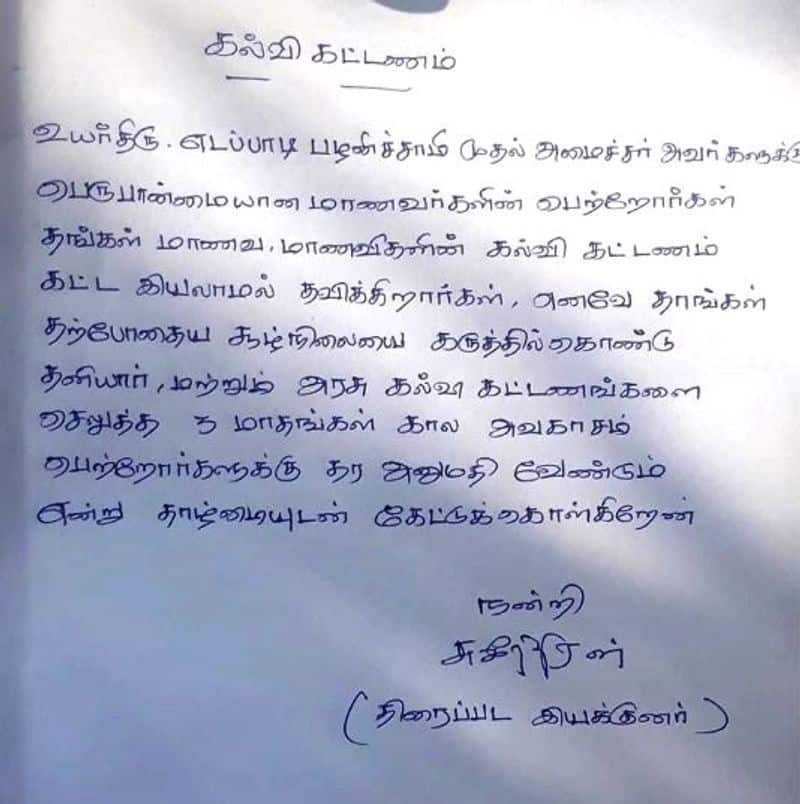 கல்வி கட்டணம்
உயர்திரு. எடப்பாடி பழனிச்சாமி முதல் அமைச்சர் அவர்களுக்கு
பெருபான்மையான மாணவர்களின் பெற்றோர்கள்
தங்கள் மாணவ, மாணவிகளின் கல்வி கட்டணம்
கட்ட இயலாமல் தவிக்கிறார்கள், எனவே தாங்கள்
தற்போதைய சூழ்நிலையை கருத்தில்கொண்டு
தனியார், மற்றும் அரசு கல்வி கட்டணங்களை
செலுத்த 3 மாதங்கள் கால அவகாசம்
பெற்றோர்களுக்கு தர அனுமதி வேண்டும்
என்று தாழ்மையுடன் கேட்டுக்கொள்கிறேன்
நன்றி
(திரைப்பட இயக்குனர்)